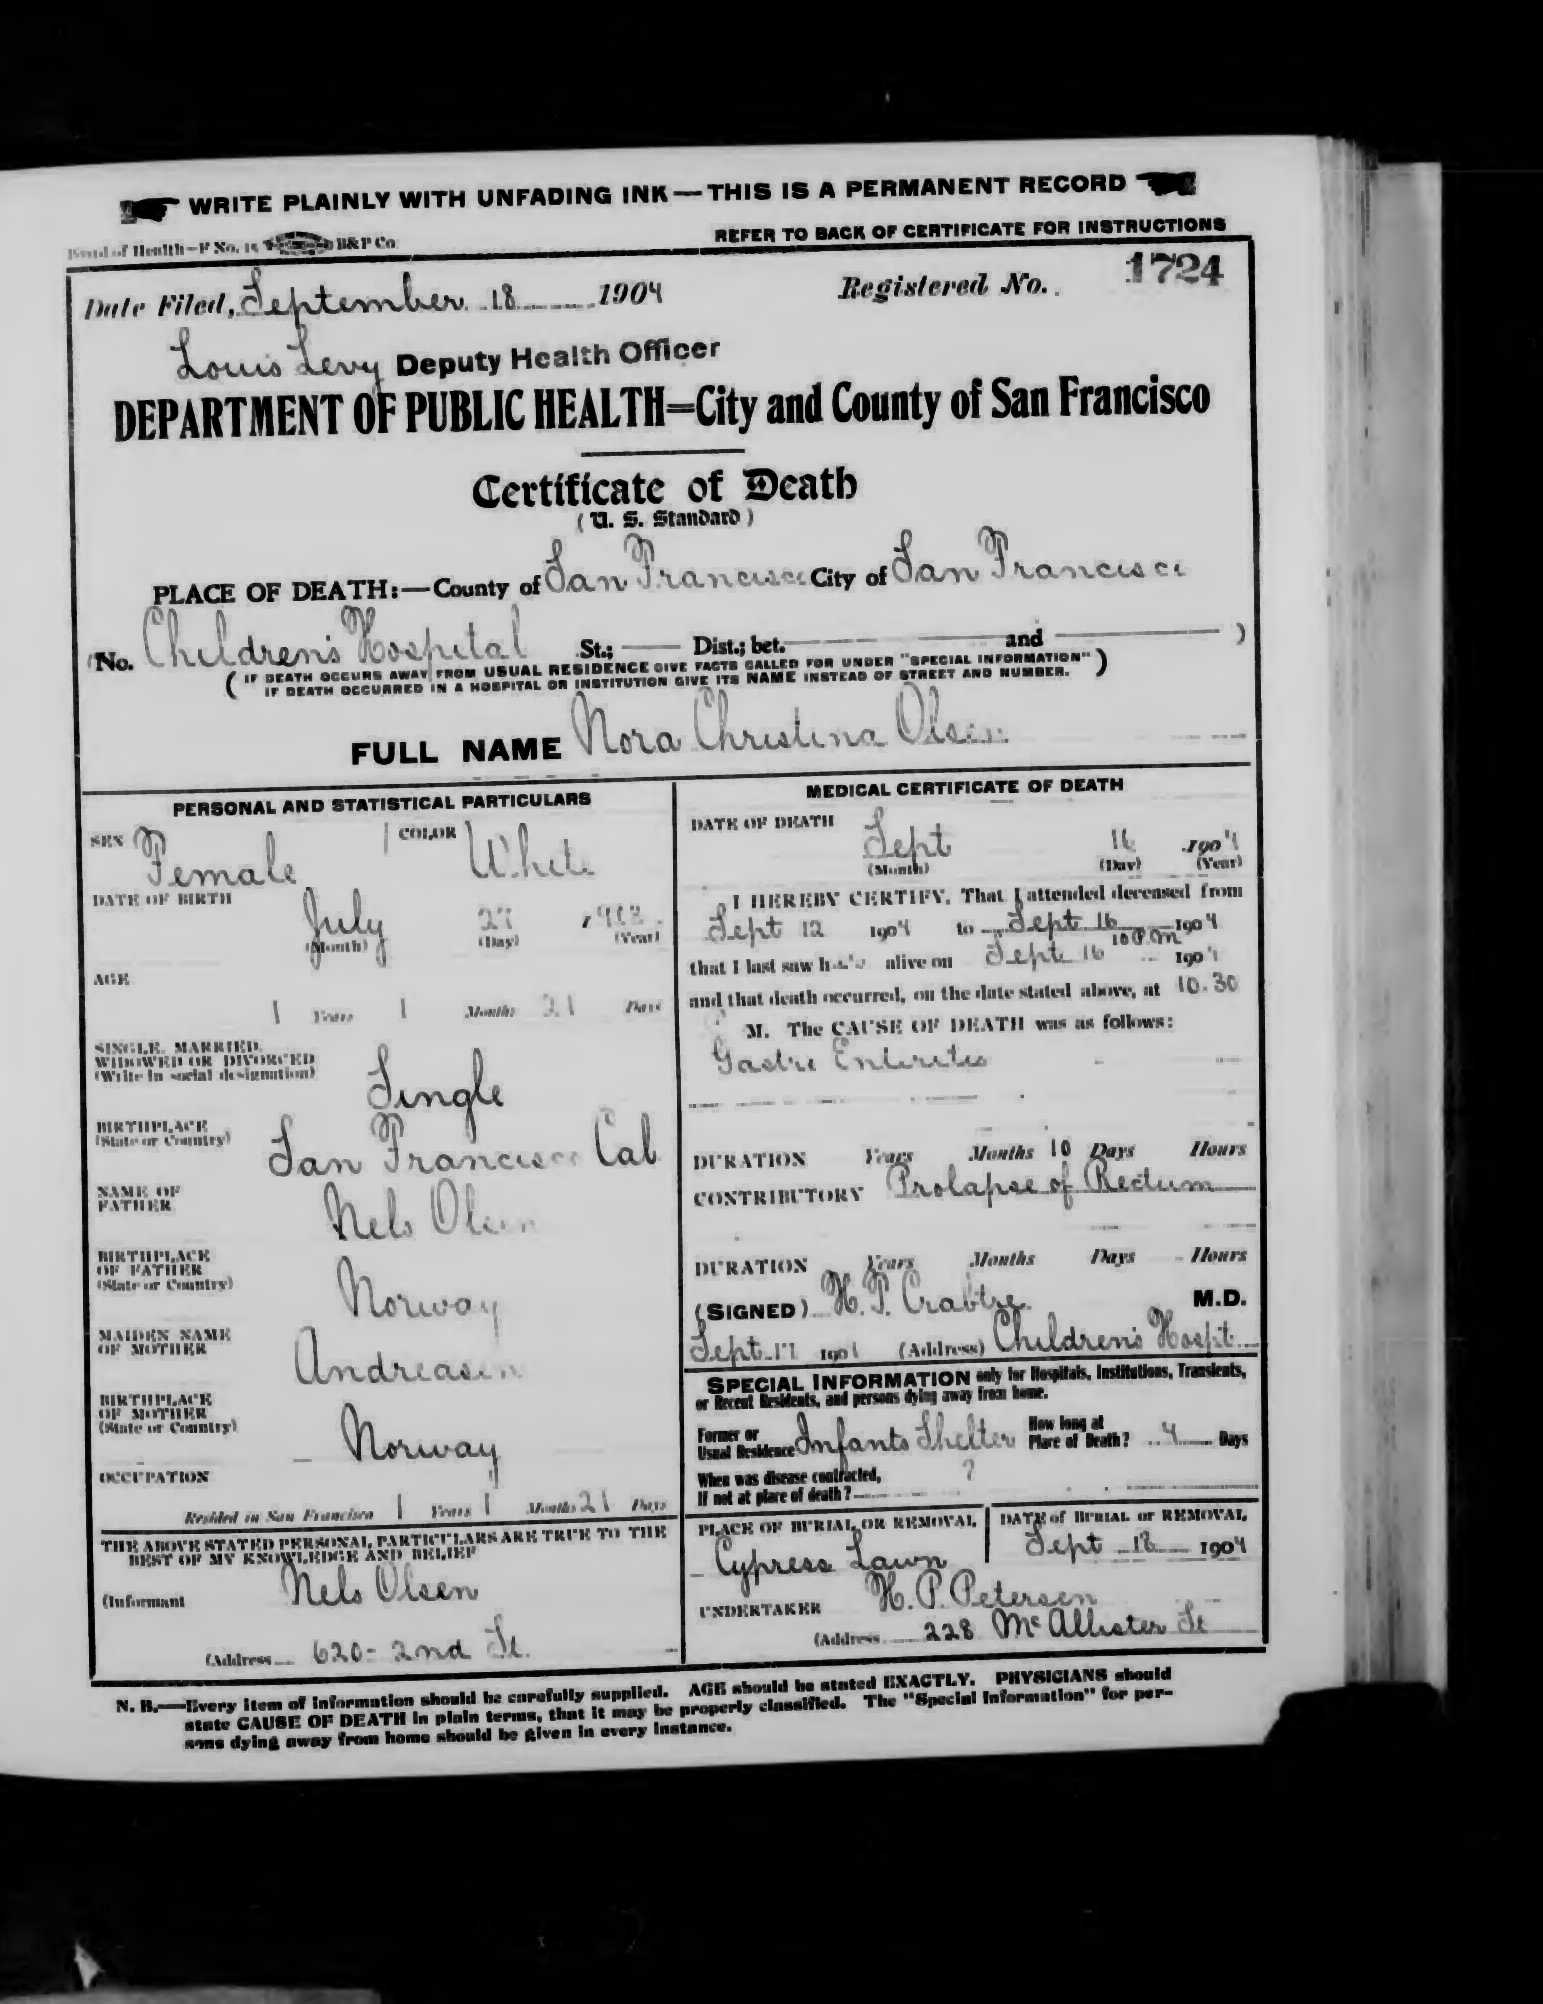 WRITE PLAINLY WITH UNFADING INK — THIS IS A PERMANENT RECORD
Board of Health—F No. 15 B&P Co
REFER TO BACK OF CERTIFICATE FOR INSTRUCTIONS
Date Filed, September 18 1904 Registered No. 1724
Louis Levy Deputy Health Officer
DEPARTMENT OF PUBLIC HEALTH=City and County of San Francisco
Certificate of Death
(U. S. Standard)
PLACE OF DEATH:—County of San Francisco City of San Francisco
(No. Children's Hospital St.; — Dist.; bet. — and — )
( IF DEATH OCCURS AWAY FROM USUAL RESIDENCE GIVE FACTS CALLED FOR UNDER "SPECIAL INFORMATION" )
IF DEATH OCCURRED IN A HOSPITAL OR INSTITUTION GIVE ITS NAME INSTEAD OF STREET AND NUMBER.
FULL NAME Nora Christina Olsen
PERSONAL AND STATISTICAL PARTICULARS
SEX Female COLOR White
DATE OF BIRTH July 27, 1903
(Month) (Day) (Year)
AGE
1 Years 1 Months 21 Days
SINGLE, MARRIED,
WIDOWED OR DIVORCED
(Write in social designation) Single
BIRTHPLACE
(State or Country) San Francisco Cal
NAME OF
FATHER Nels Olsen
BIRTHPLACE
OF FATHER
(State or Country) Norway
MAIDEN NAME
OF MOTHER Andreasen
BIRTHPLACE
OF MOTHER
(State or Country) Norway
OCCUPATION
Resided in San Francisco 1 Years 1 Months 21 Days
THE ABOVE STATED PERSONAL PARTICULARS ARE TRUE TO THE
BEST OF MY KNOWLEDGE AND BELIEF
(Informant Nels Olsen
(Address 620- 2nd St.
MEDICAL CERTIFICATE OF DEATH
DATE OF DEATH
Sept 16 1904
(Month) (Day) (Year)
I HEREBY CERTIFY, That I attended deceased from
Sept 12 1904 to Sept 16 1904
10 P.M
that I last saw h alive on Sept 16 1904
and that death occurred, on the date stated above, at 10.30
M. The CAUSE OF DEATH was as follows:
Gastro Enteritis
DURATION Years Months 10 Days Hours
CONTRIBUTORY Prolapse of Rectum
DURATION Years Months Days Hours
(SIGNED) H. P. Crabtre M.D.
Sept 17 1904 (Address) Children's Hospt
SPECIAL INFORMATION only for Hospitals, Institutions, Transients,
or Recent Residents, and persons dying away from home.
Former or
Usual Residence Infants Shelter How long at
Place of Death? 4 Days
When was disease contracted,
If not at place of death? ?
PLACE OF BURIAL OR REMOVAL DATE of BURIAL or REMOVAL
Cypress Lawn Sept 18 1904
UNDERTAKER H. P. Petersen
(Address 228 McAllister St
N. B.—Every item of information should be carefully supplied. AGE should be stated EXACTLY. PHYSICIANS should
state CAUSE OF DEATH in plain terms, that it may be properly classified. The "Special Information" for per-
sons dying away from home should be given in every instance.